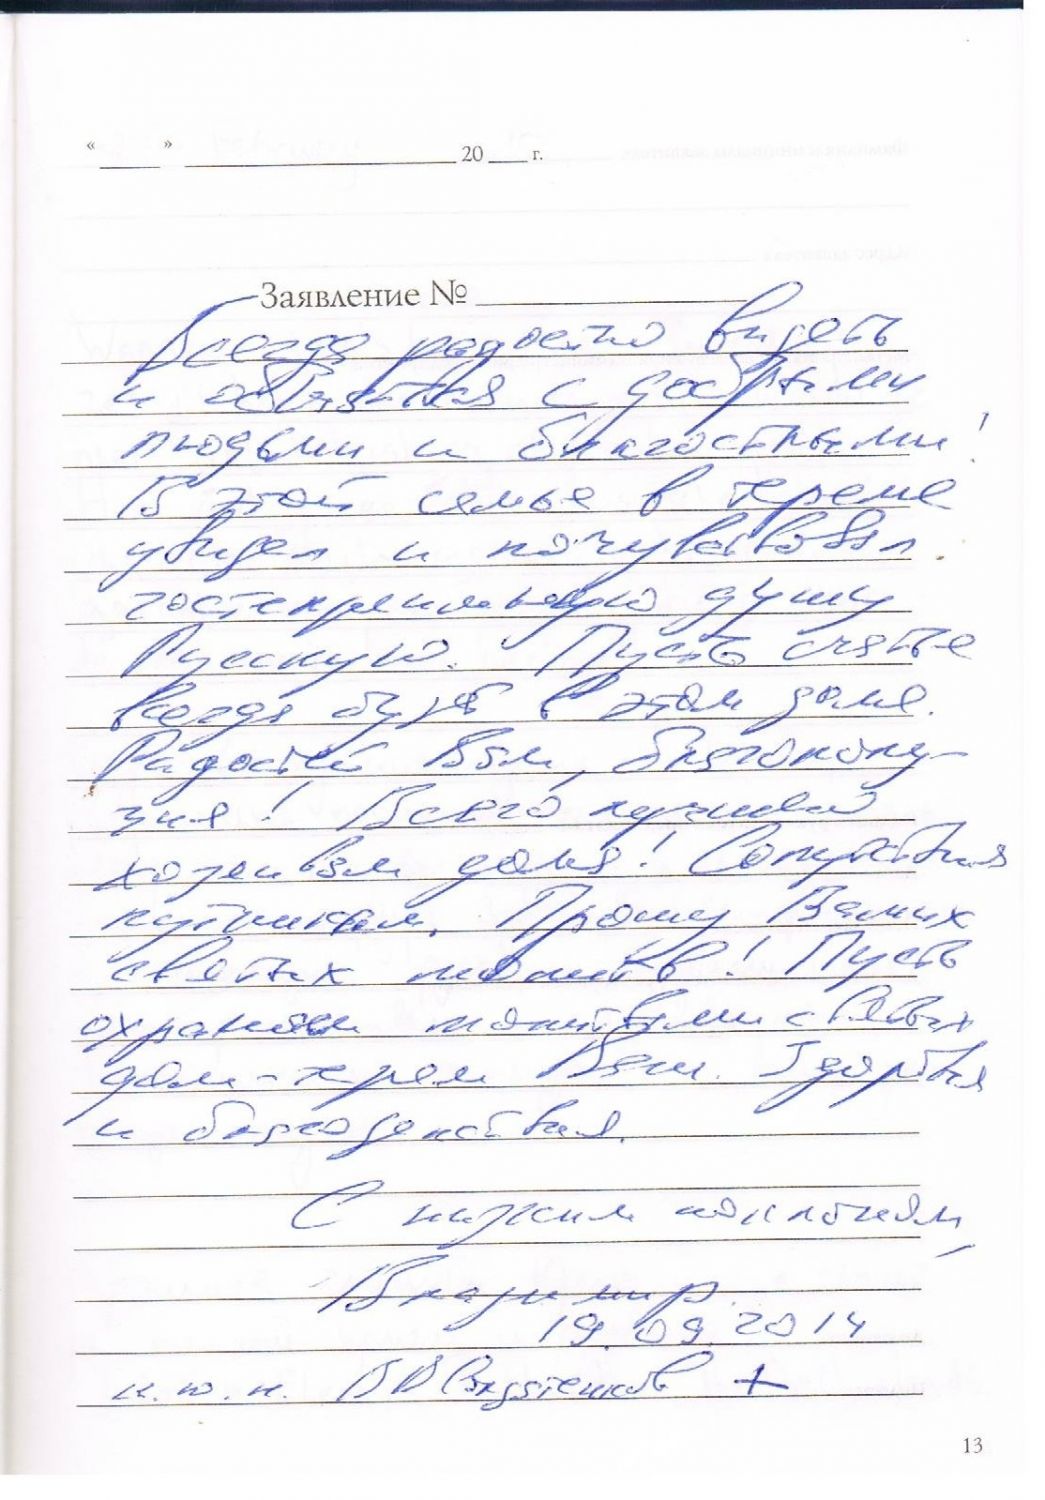 « » 20 г.
Заявление №
Всегда радостно видеть
и общаться с добрыми
людьми и благостными!
В этой семье в тереме
увидел и почувствовал
гостеприимную душу
Русскую. Пусть счастье
всегда будет в этом доме.
Радостей Вам, благополу-
чия! Всего лучшего
хозяевам дома!
путникам. Прошу Ваших
святых молитв! Пусть
охраняем молитвами святых
дом-терем Ваш. Здоровья
и благоденствия.
С низким поклоном,
Владимир
19.09.2014
к.ю.н.
13